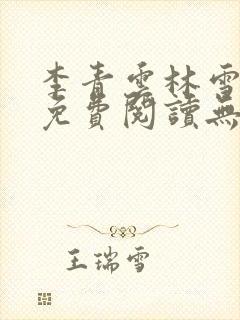 李青雲林雪
免費閱讀無
王瑞雪